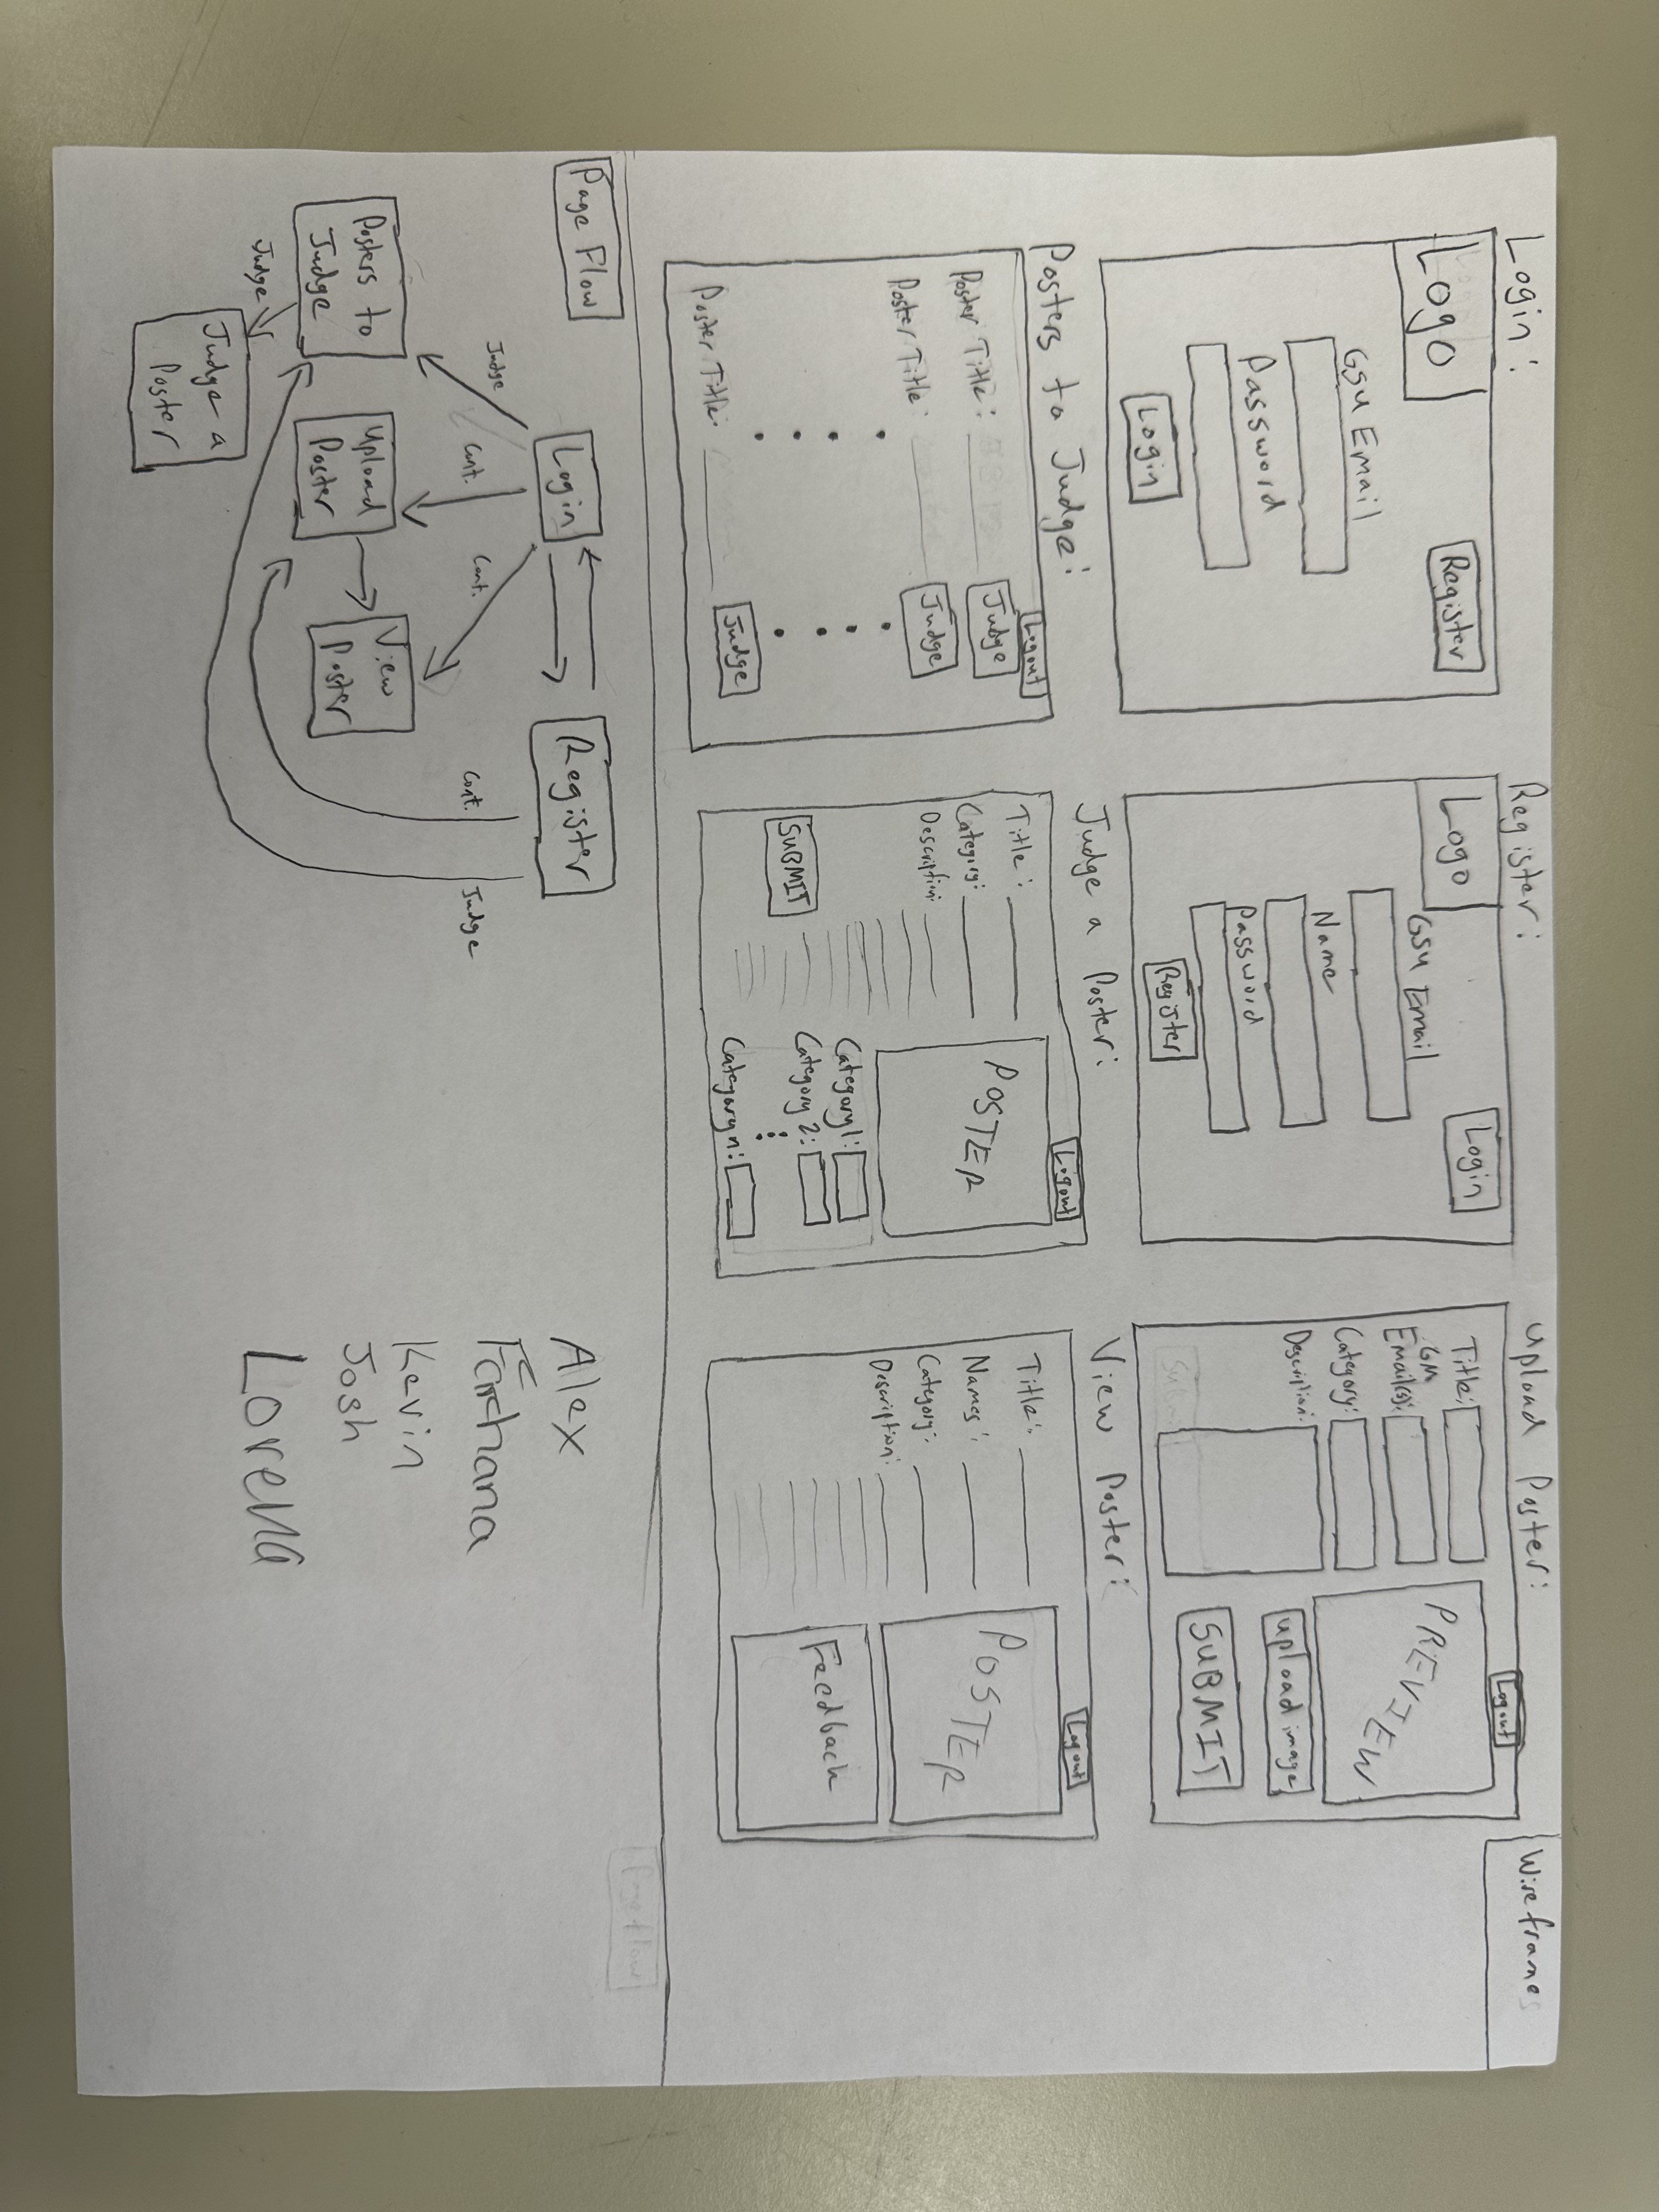 Login:
Logo
Register
GSU Email
Password
Login
Register:
Logo
Login
GSU Email
Name
Password
Register
Upload Poster:
Logout
Title:
GM
Email(s):
Category:
Description:
PREVIEW
upload image
SUBMIT
Submit
Wireframes
Posters to Judge:
Logout
Poster Title:
Judge
Poster Title:
Judge
Poster Title:
Judge
Judge a Poster:
Logout
Title:
Category:
Description:
POSTER
SUBMIT
Category 1:
Category 2:
Category n:
View Poster:
Logout
Title:
Names:
Category:
Description:
POSTER
Feedback
Page Flow
Page Flow
Login
Register
Judge
Cont.
Cont.
Cont.
Judge
Posters to
Judge
Upload
Poster
View
Poster
Judge
Judge a
Poster
Alex
Farhana
Kevin
Josh
Lorena